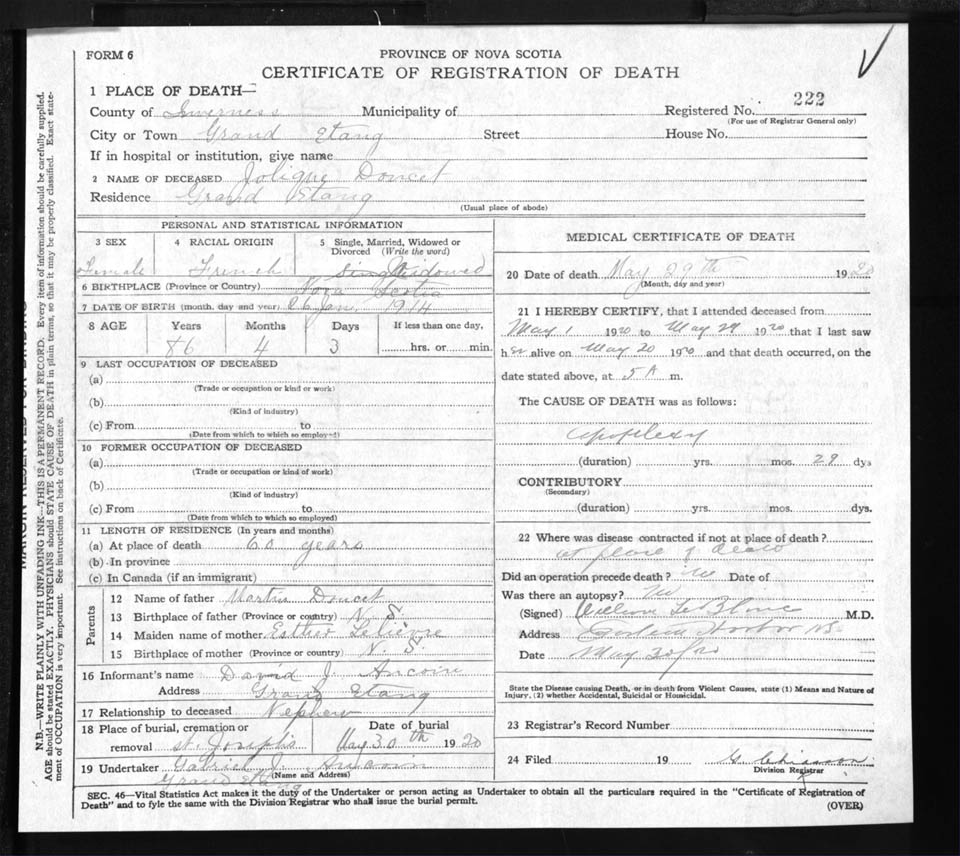 FORM 6
PROVINCE OF NOVA SCOTIA
CERTIFICATE OF REGISTRATION OF DEATH
1 PLACE OF DEATH—
County of Inverness Municipality of Registered No. 222
(For use of Registrar General only)
City or Town Grand Etang Street House No.
If in hospital or institution, give name
2 NAME OF DECEASED Jolique Doucet
Residence Grand Etang
(Usual place of abode)
PERSONAL AND STATISTICAL INFORMATION
3 SEX 4 RACIAL ORIGIN 5 Single, Married, Widowed or Divorced (Write the word)
Female French Widowed
6 BIRTHPLACE (Province or Country) Nova Scotia
7 DATE OF BIRTH (month, day and year) 26 Jan. 1914
8 AGE Years Months Days If less than one day,
86 4 3 hrs. or min.
9 LAST OCCUPATION OF DECEASED
(a)
(Trade or occupation or kind or work)
(b)
(Kind of industry)
(c) From to
(Date from which to which so employed)
10 FORMER OCCUPATION OF DECEASED
(a)
(Trade or occupation or kind of work)
(b)
(Kind of industry)
(c) From to
(Date from which to which so employed)
11 LENGTH OF RESIDENCE (In years and months)
(a) At place of death 60 years
(b) In province
(c) In Canada (if an immigrant)
Parents
12 Name of father Martin Doucet
13 Birthplace of father (Province or country) N. S.
14 Maiden name of mother Esther
15 Birthplace of mother (Province or country) N. S.
16 Informant's name David J Aucoin
Address Grand Etang
17 Relationship to deceased Nephew
18 Place of burial, cremation or removal St. Joseph's Date of burial May 30th 1920
19 Undertaker Gabriel J. Aucoin
(Name and Address)
Grand Etang
MEDICAL CERTIFICATE OF DEATH
20 Date of death May 29th 1920
(Month, day and year)
21 I HEREBY CERTIFY, that I attended deceased from
May 1 1920 to May 29 1920 that I last saw
her alive on May 20 1920 and that death occurred, on the
date stated above, at 5 A m.
The CAUSE OF DEATH was as follows:
Apoplexy
(duration) yrs. mos. 29 dys
CONTRIBUTORY
(Secondary)
(duration) yrs. mos. dys.
22 Where was disease contracted if not at place of death?
at place of death
Did an operation precede death? no Date of
Was there an autopsy? no
(Signed) William LeBlanc M.D.
Address Harbor NS.
Date May 30/20
State the Disease causing Death, or in death from Violent Causes, state (1) Means and Nature of
Injury, (2) whether Accidental, Suicidal or Homicidal.
23 Registrar's Record Number
24 Filed 19 G. Chiasson
Division Registrar
SEC. 46—Vital Statistics Act makes it the duty of the Undertaker or person acting as Undertaker to obtain all the particulars required in the "Certificate of Registration of
Death" and to fyle the same with the Division Registrar who shall issue the burial permit.
(OVER)
N.B.—WRITE PLAINLY WITH UNFADING INK—THIS IS A PERMANENT RECORD. Every item of information should be carefully supplied.
AGE should be stated EXACTLY. PHYSICIANS should STATE CAUSE OF DEATH in plain terms, so that it may be properly classified. Exact state-
ment of OCCUPATION is very important. See instructions on back of Certificate.